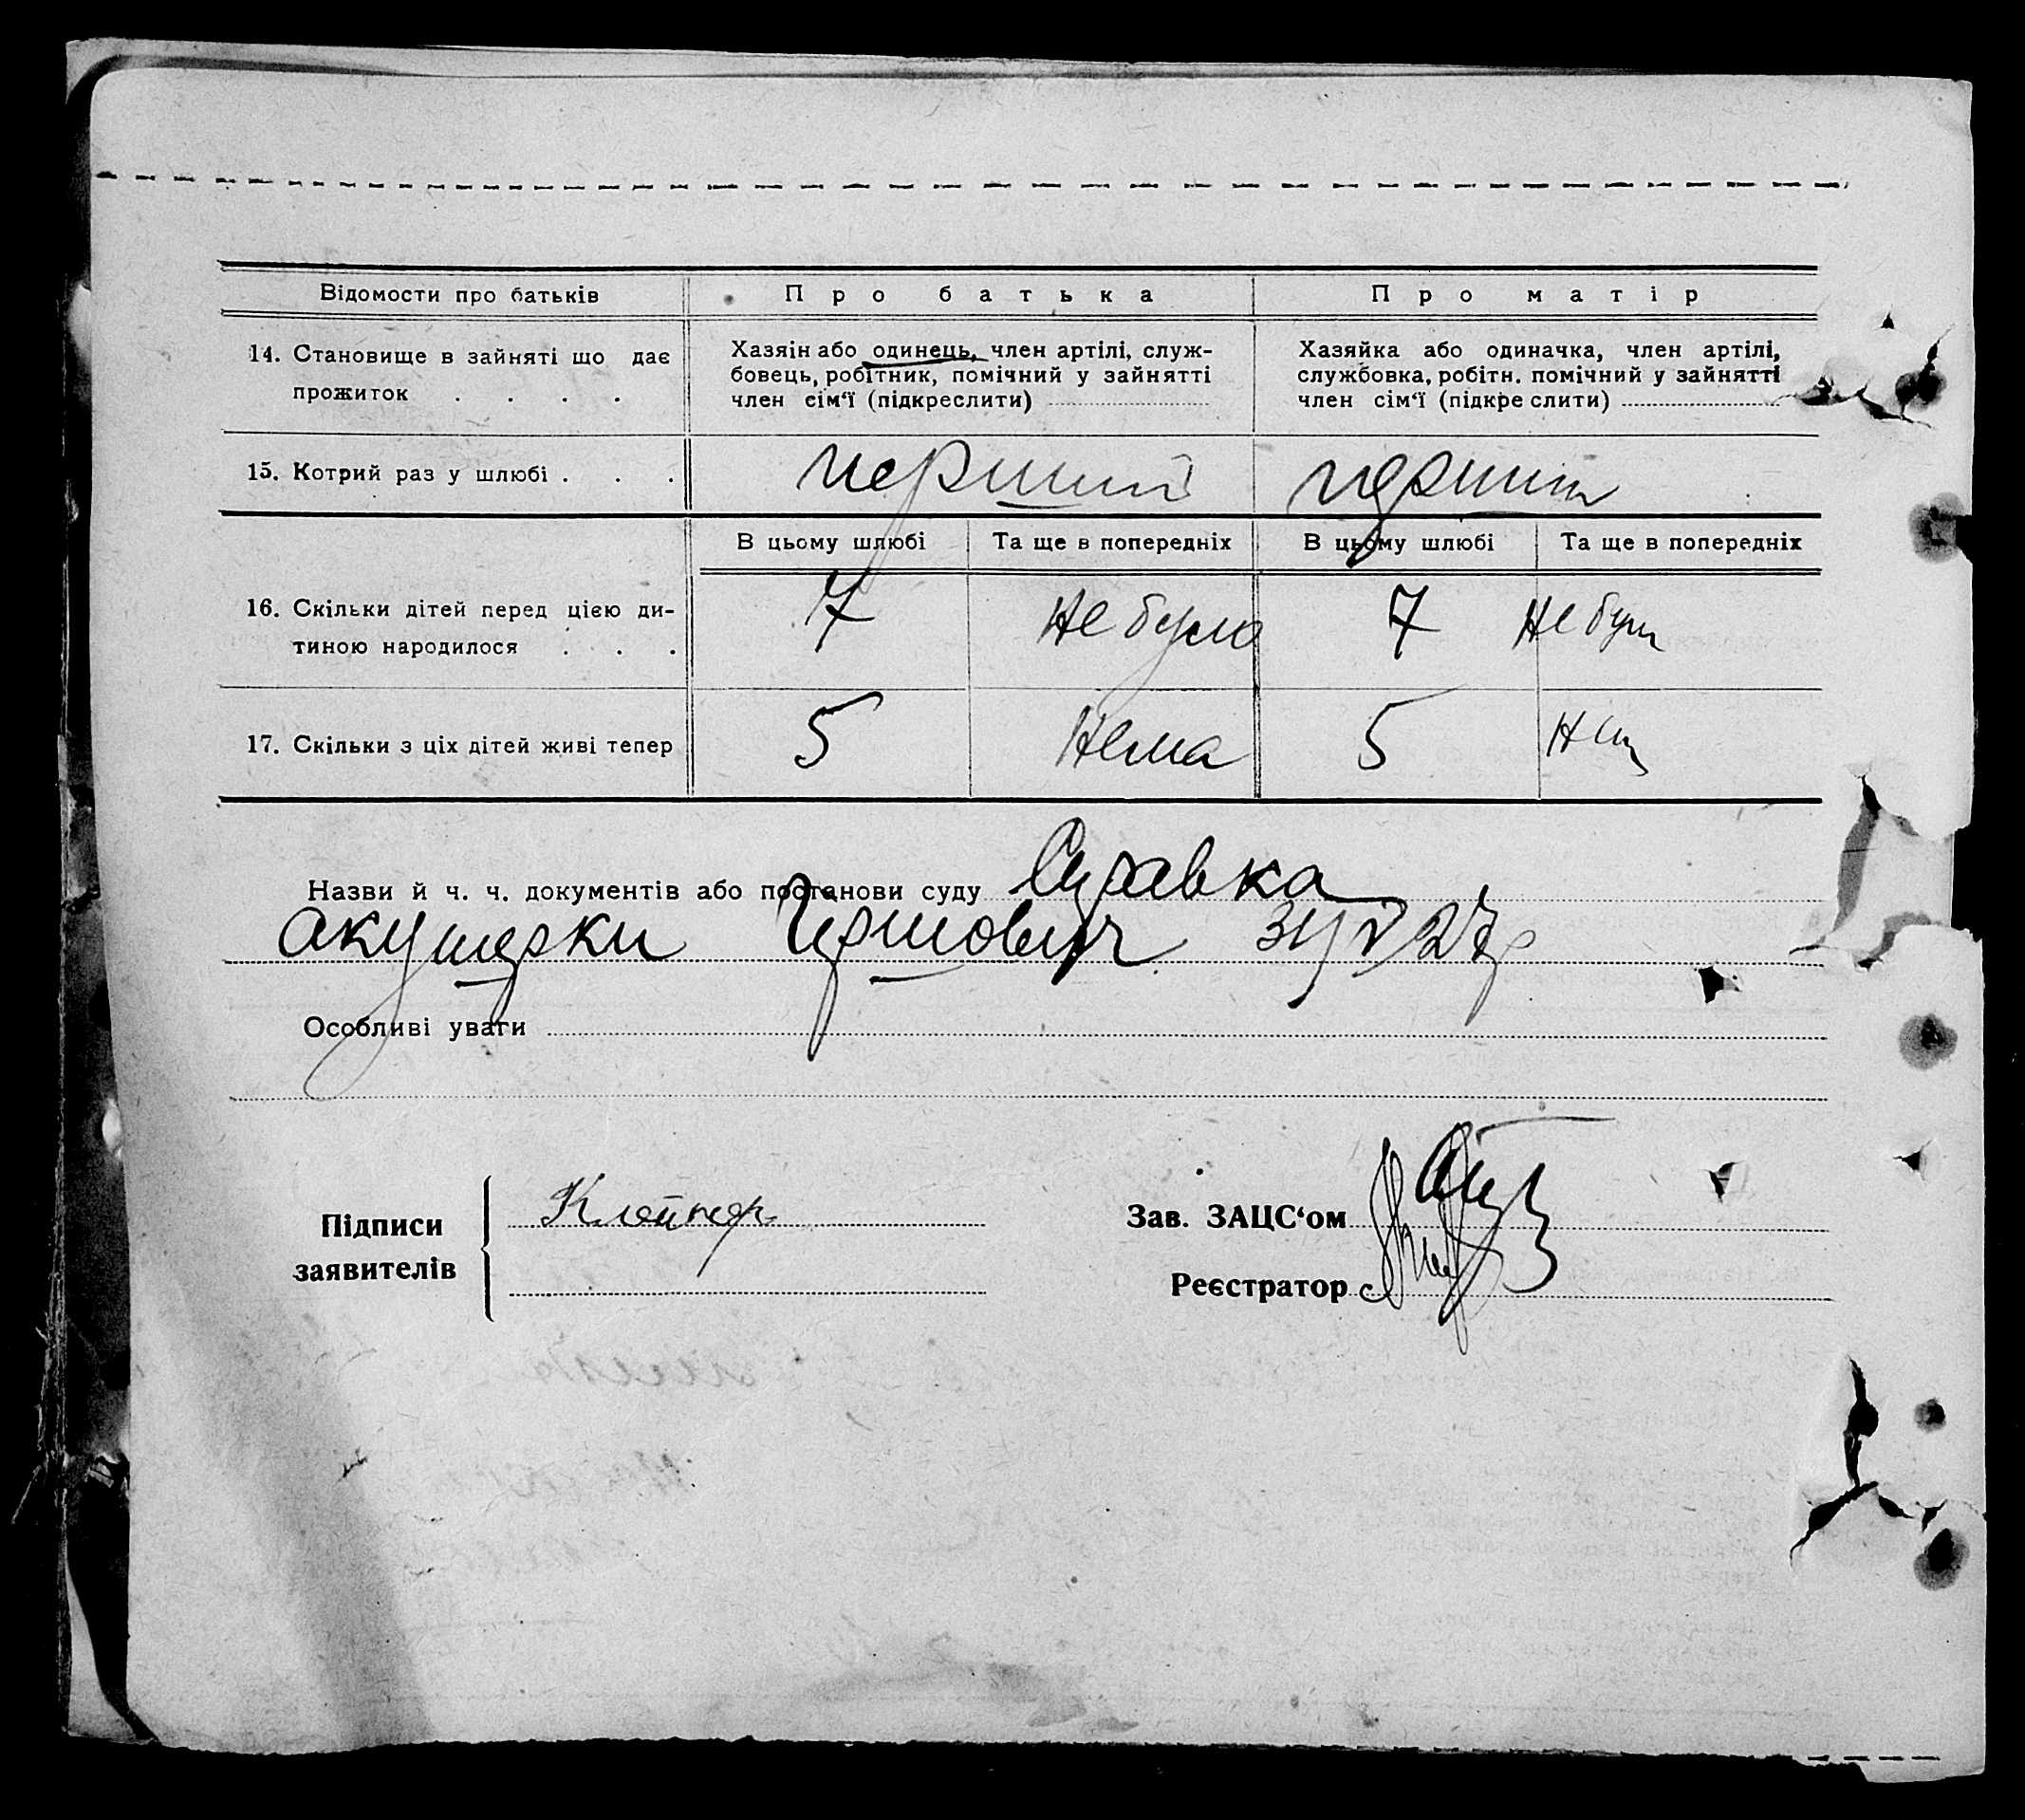 Відомости про батьків
Про батька
Про матір
14. Становище в зайняті що дає
прожиток . . . .
Хазяїн або одинець, член артілі, служ-
бовець, робітник, помічний у зайнятті
член сім'ї (підкреслити)
Хазяйка або одиначка, член артілі,
службовка, робітн. помічний у зайнятті
член сім'ї (підкреслити)
15. Котрий раз у шлюбі . . .
перший
перший
В цьому шлюбі
Та ще в попередніх
В цьому шлюбі
Та ще в попередніх
16. Скільки дітей перед цією ди-
тиною народилося . . .
7
Не було
7
Не було
17. Скільки з ціх дітей живі тепер
5
Нема
5
Назви й ч. ч. документів або постанови суду
акушерки
27
Особливі уваги
Підписи
заявителів
Зав. ЗАЦС‘ом
Реєстратор